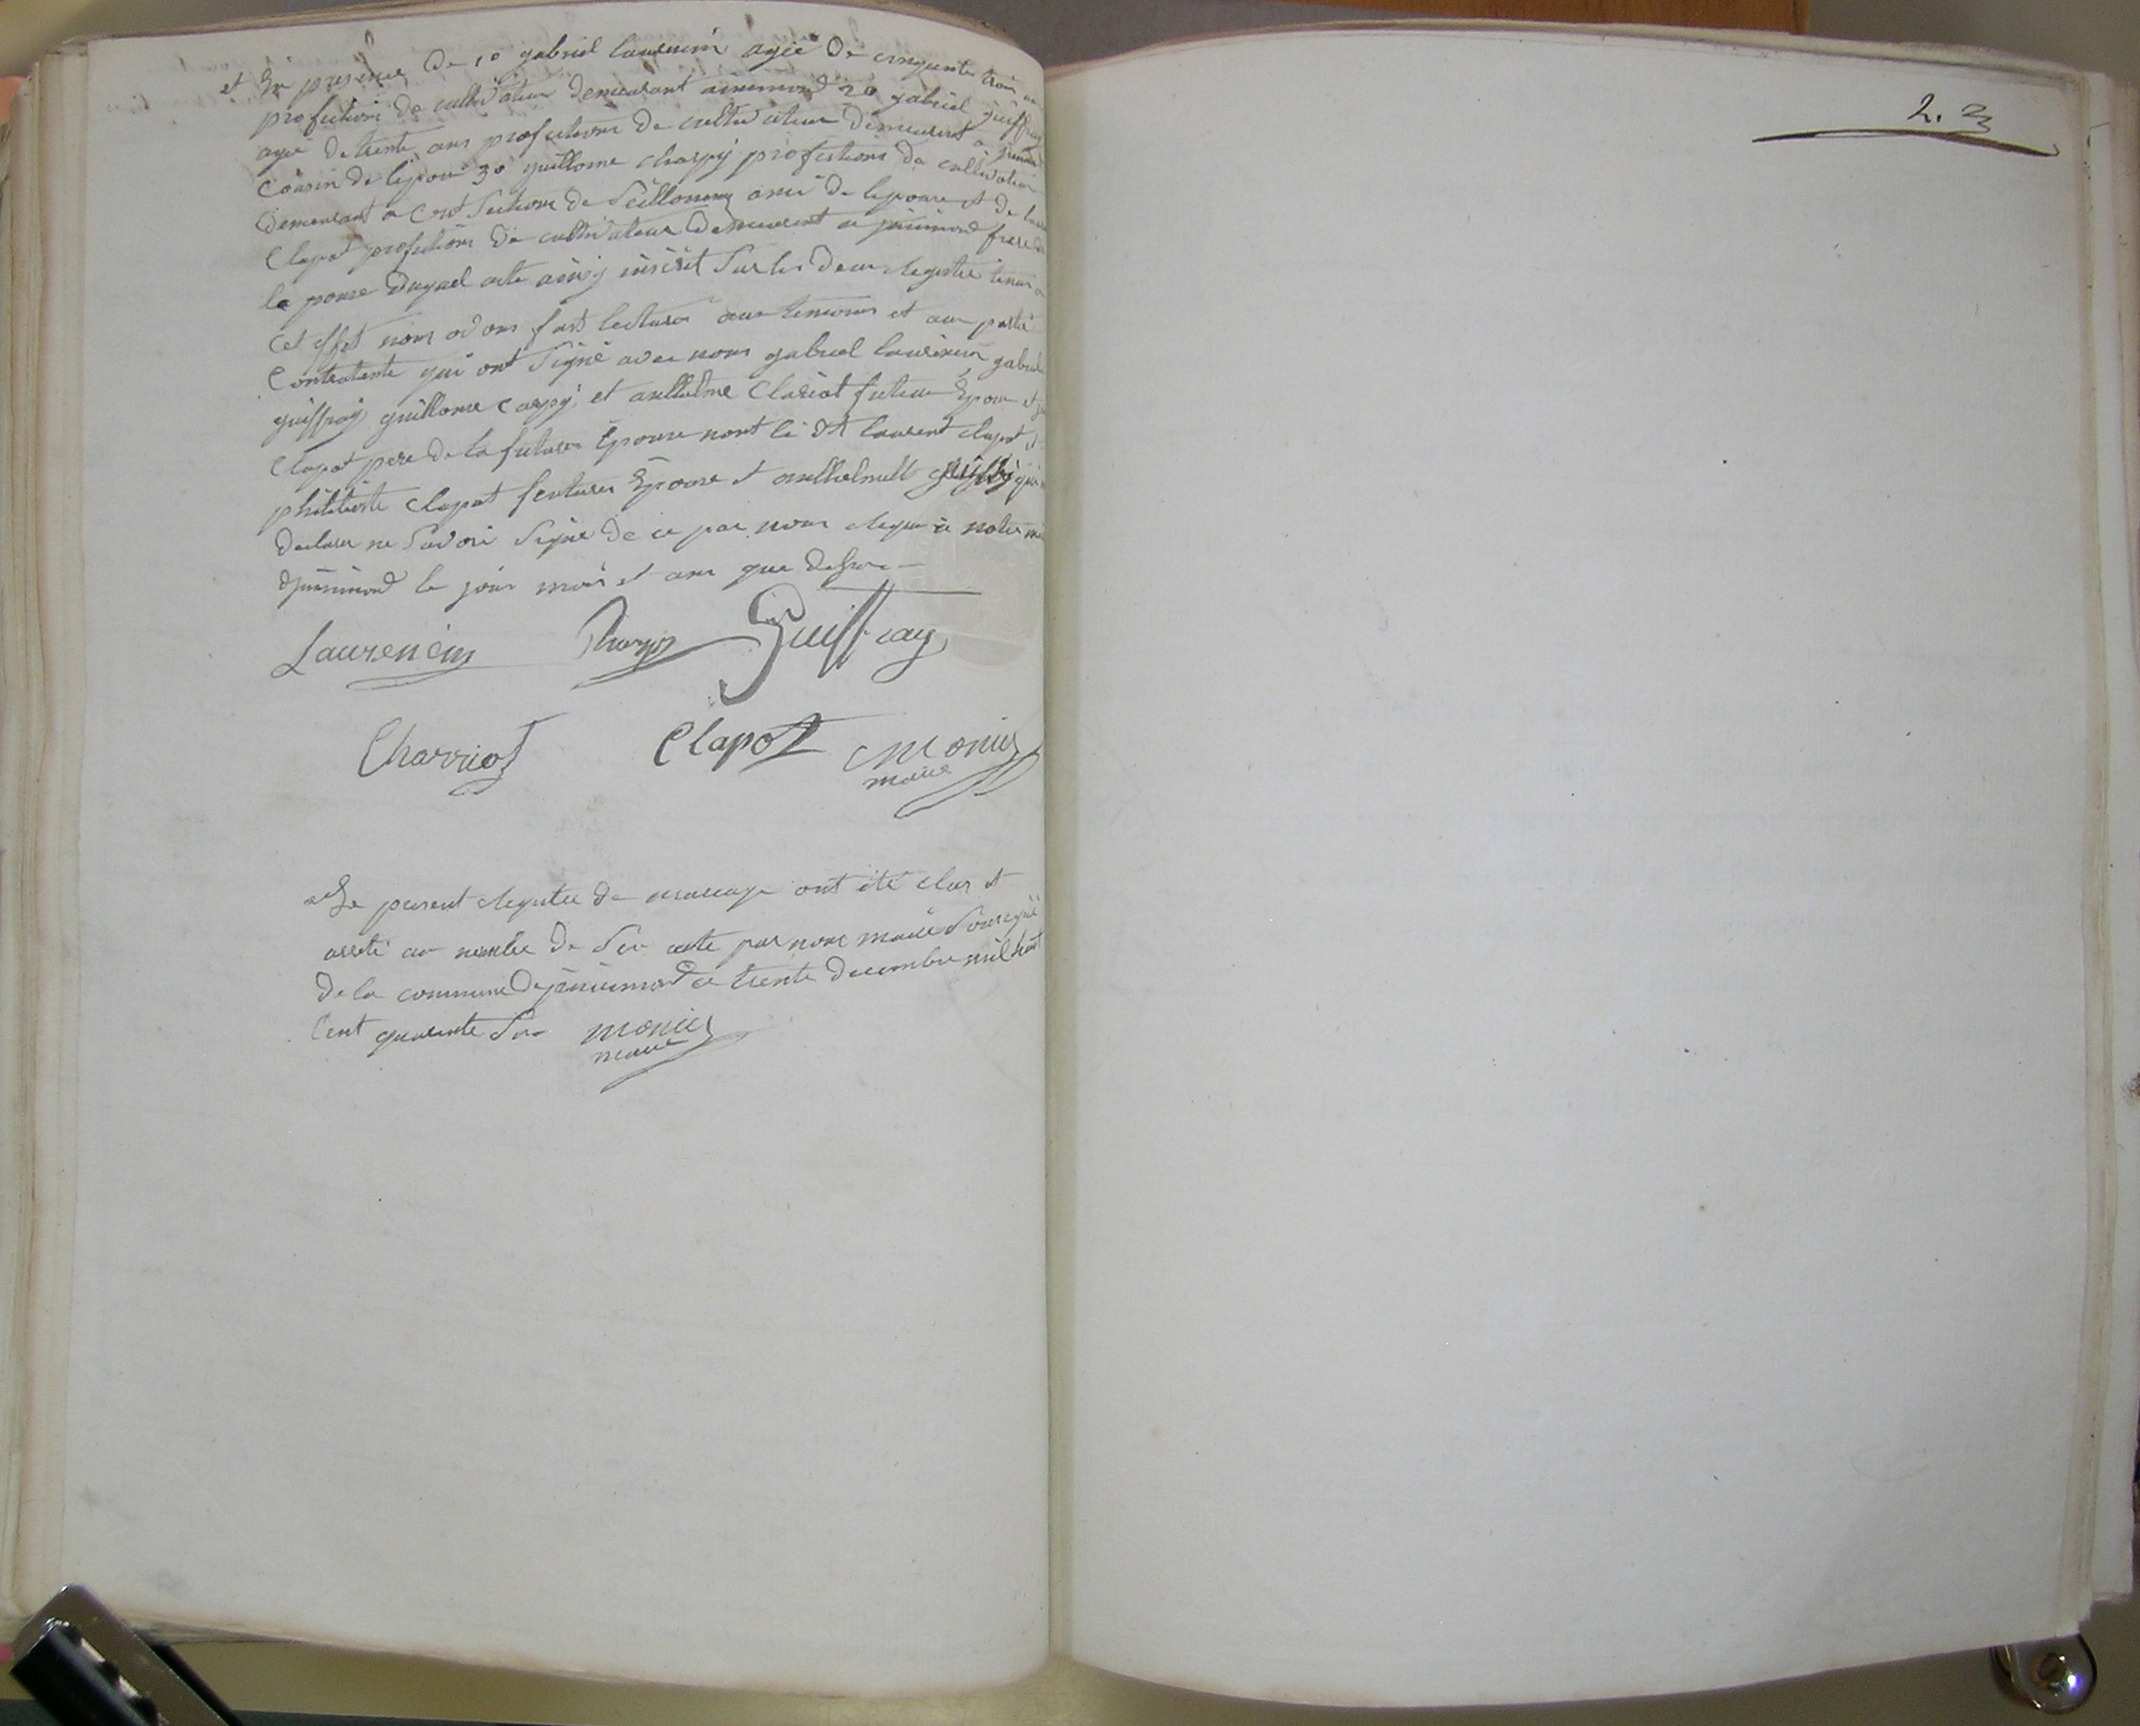 et En presence de 1o gabriel laurencin agée De cinquante trois
profestions de cultivateur demeurant a 2o gabriel guiffray
agée de trente ans profestions de cultivateur demeurant a
Cousin de lepoux 3o guillome charpy profestions de cultivateur
demeurant a Sections de ami de lepouse et de
Clapot profestions de cultivateur demeurant a frere de
le pouse Duquel acte ainsy inscrit Sur les deux Registre tenus a
Cet effet nous avons fait lecture aux temoins et aux partie
Contratente qui ont Signé avec nous gabriel laurencin gabriel
guiffray guillome carpy et anthelme Clariot futeur Epoux et
Clapot pere de la future Epouse nont le dt laurent clapot et
Clapot feuture Epouse et
declarer ne Savoir Signe de ce par nous
le jour mois et ans que dessus
Laurencin Charpy Guiffray
Charriot Clapot Monier
maire
Le present Registre de mariage ont été clos et
areté au nombre de Six acte par nous maire Sousigné
De la commune De ce trente Decembre mil huit
Cent quarente Six monier
maire
2. 3